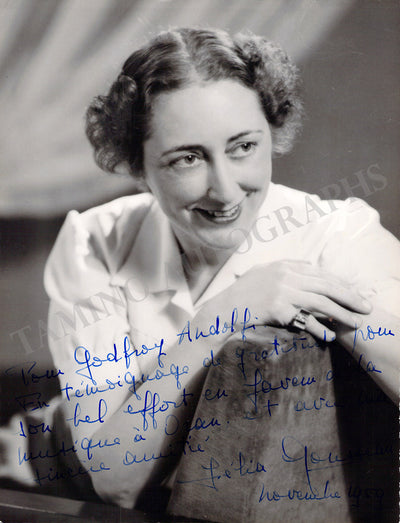 Pour Godfroy Andolfi
En témoignage de gratitude pour
son bel effort en faveur de la
musique à Oran. Et avec ma
sincère amitié
Lélia Gousseau
novembre 1959
TAMINO AUTOGRAPHS